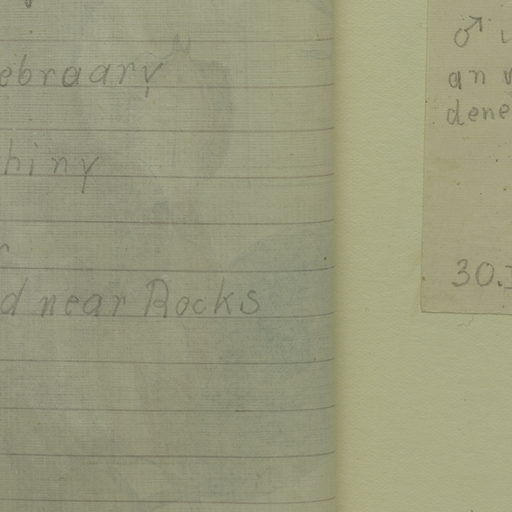 ebraary
hiny
d near Rocks
♂
an
dene
30.